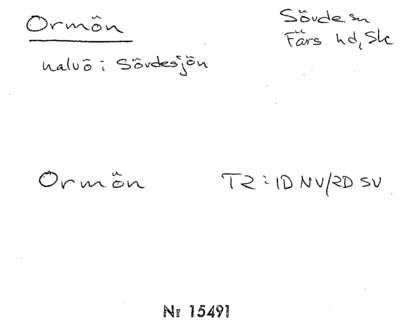 Ormön
Sövde sn
Färs hd, Sk
halvö i Sövdesjön
Ormön
T2:1D NV/2D SV
Nr 15491